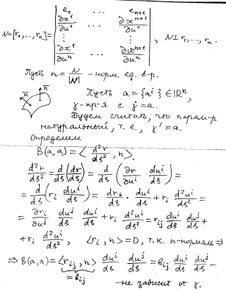 N=[r₁,...,rₙ]= | e₁ ... eₙ₊₁ ; ∂x¹/∂u¹ ... ∂xⁿ⁺¹/∂u¹ ; ⋮ ; ∂x¹/∂uⁿ ... ∂xⁿ⁺¹/∂uⁿ | , N⊥r₁,...,rₙ.
Пусть n = N/|N| - норм. ед. в-р.
Пусть a = {aⁱ} ∈ ℝⁿ,
γ-кр-я с γ̇ = a.
Будем считать, что парам-р
натуральный, т.е., γ' = a.
Определим
B(a,a) = ⟨d²r/ds², n⟩.
d²r/ds² = d/ds (dr/ds) = d/ds (∂r/∂uⁱ duⁱ/ds) =
= d/ds (rᵢ duⁱ/ds) = drᵢ/ds · duⁱ/ds + rᵢ d²uⁱ/ds² =
= ∂rᵢ/∂uʲ duʲ/ds duⁱ/ds + rᵢ d²uⁱ/ds² = rᵢⱼ duʲ/ds duⁱ/ds +
+ rᵢ d²uⁱ/ds², ⟨rᵢ, n⟩ = 0, т.к. n-нормаль ⇒
⇒ B(a,a) = ⟨rᵢⱼ, n⟩ duʲ/ds duⁱ/ds = bᵢⱼ duⁱ/ds duʲ/ds -
= bᵢⱼ - не зависит от γ.